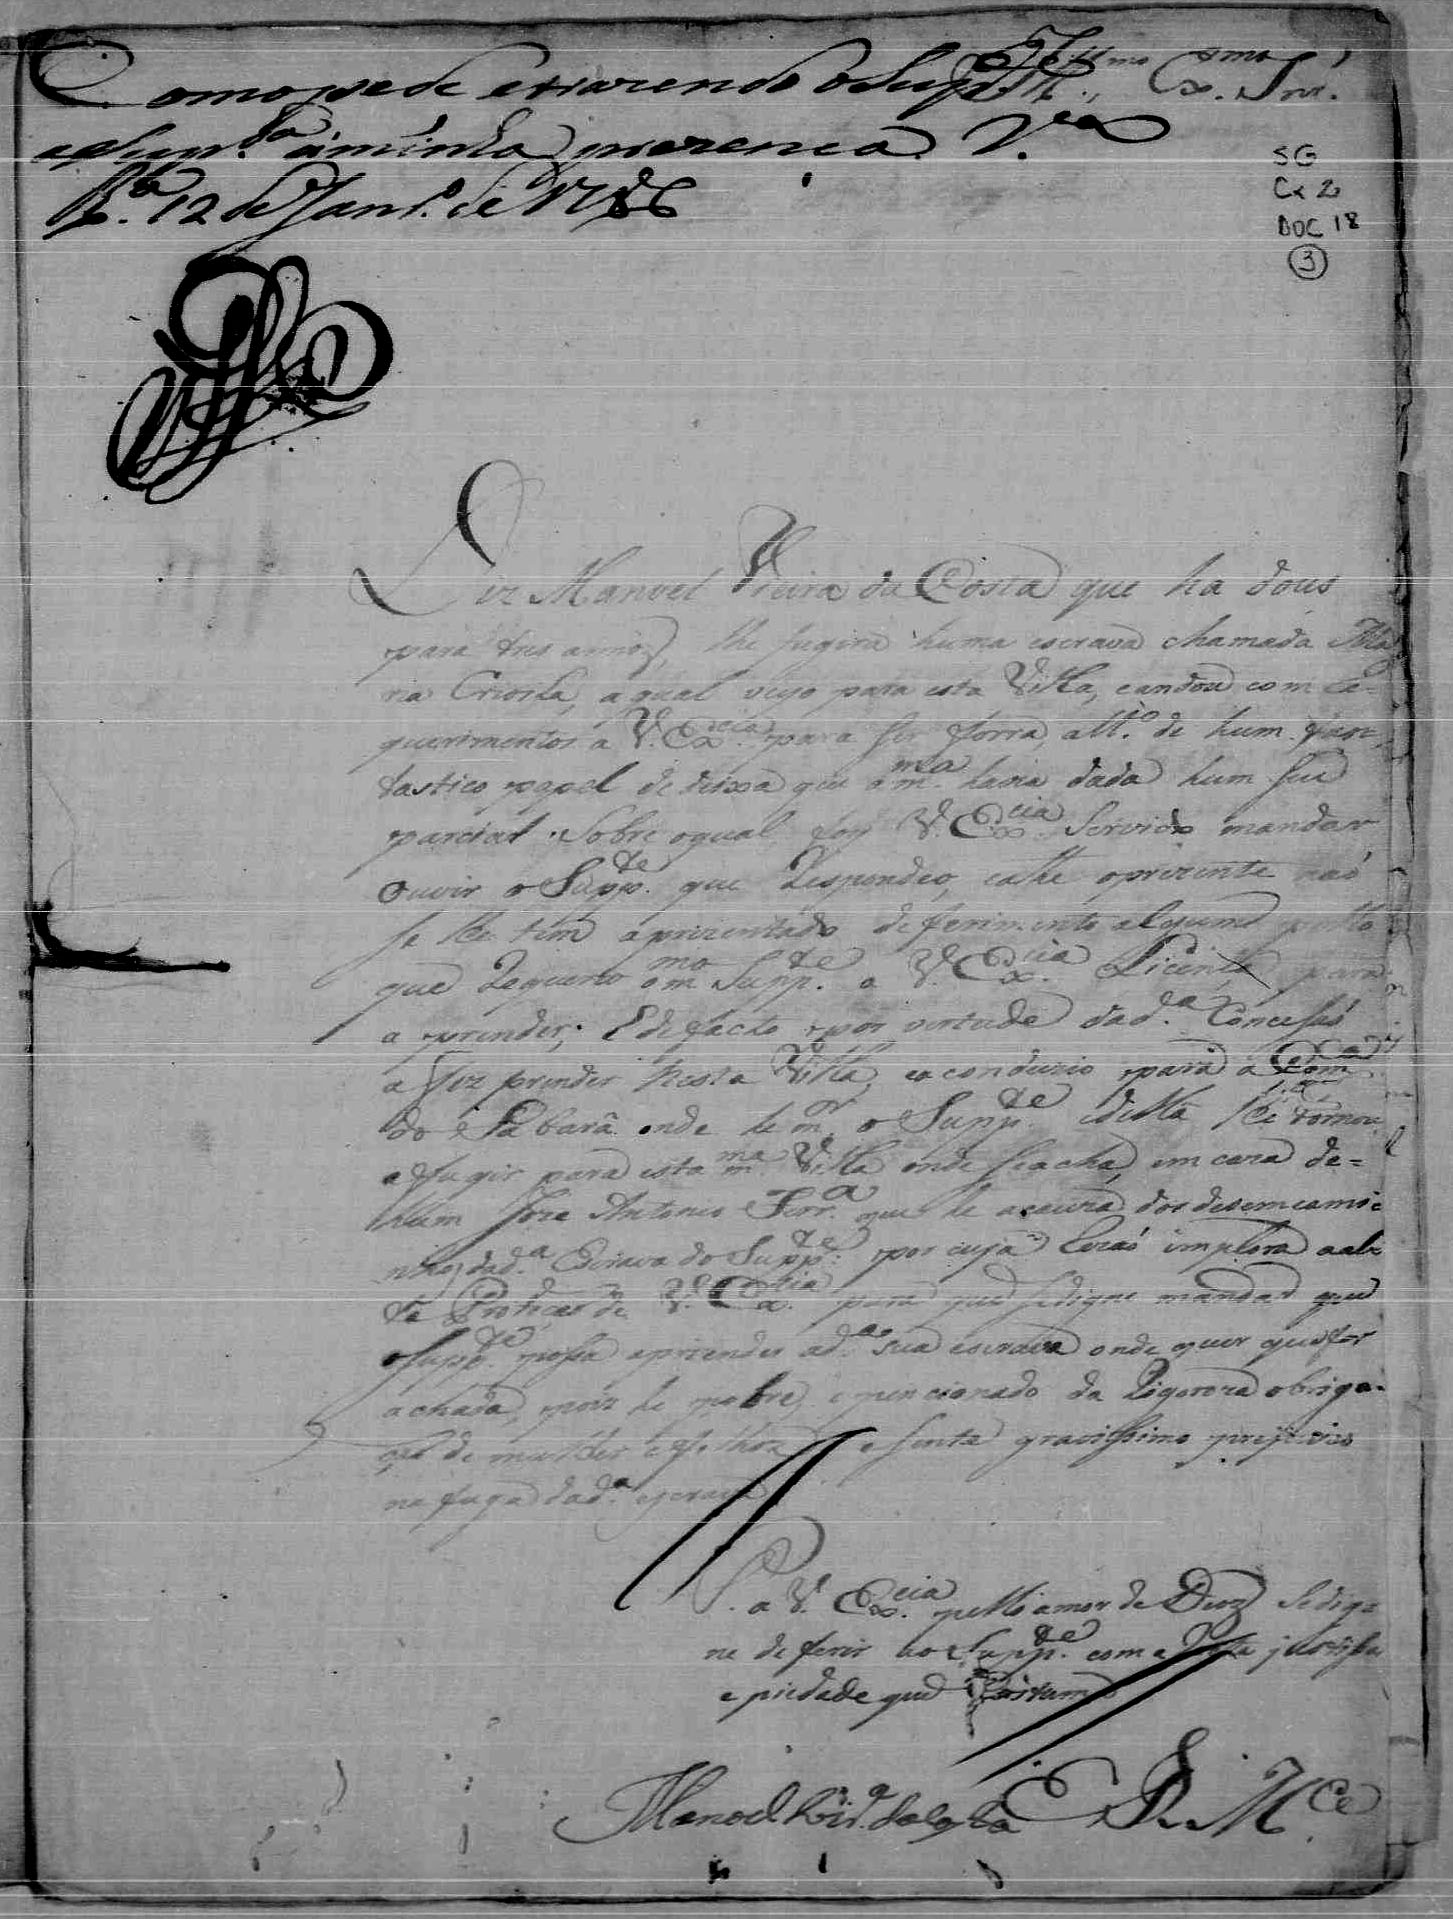 Como pede e trazendo o Sup.te
a Sup.da á minha prezença V.a
R.ca 12 de Janr.o de 1786
Ill.mo Ex.mo Snr.
SG
Cx 2
DOC 18
3
Diz Manoel Vieira da Costa que ha dous
para tres annos, lhe fugira huma escrava chamada Ma
ria Crioila, a qual veyo para esta Villa, e andou com Re=
querimentos a V. Ex.cia para ser forra, a tt.o de hum fan
tastico papel de deixa que a m.ma havia dada hum seu
parcial. Sobre o qual foy V. Ex.cia Servido mandar
ouvir o Supp.te que Respondeo, e athe o prezente não
se lhe tem aprezentado deferimento algum pello
que Requereo o m.mo Supp.te a V. Ex.cia Licença para
a prender; E de facto por vertude da d.a Concessão
a fez prender nesta Villa, e a conduzio para a Com.ca
do Sabará onde he m.or o Supp.te e della lhe tornou
a fugir para esta m.ma Villa onde se acha, em caza de=
hum Joze Antonio Ferr.a que he a cauza dos desemcami=
nhos da d.a Escrava do Supp.te por cuja Rezão implora a al=
ta Proteção de V. Ex.cia para que se digne mandar que
o Supp.te possa aprender a d.a sua escrava onde quer que for
achada, pois he pobre, e pencionado da Rigoroza obriga=
ção de mulher e filhos e sente gravissimo prejuizo
na fuga da d.a escrava
P. a V. Ex.cia pello amor de Deos se dig=
ne deferir ao Supp.te com a justissa
e piedade que Custuma
E. R. M.ce
Manoel Vieir.a da Costa